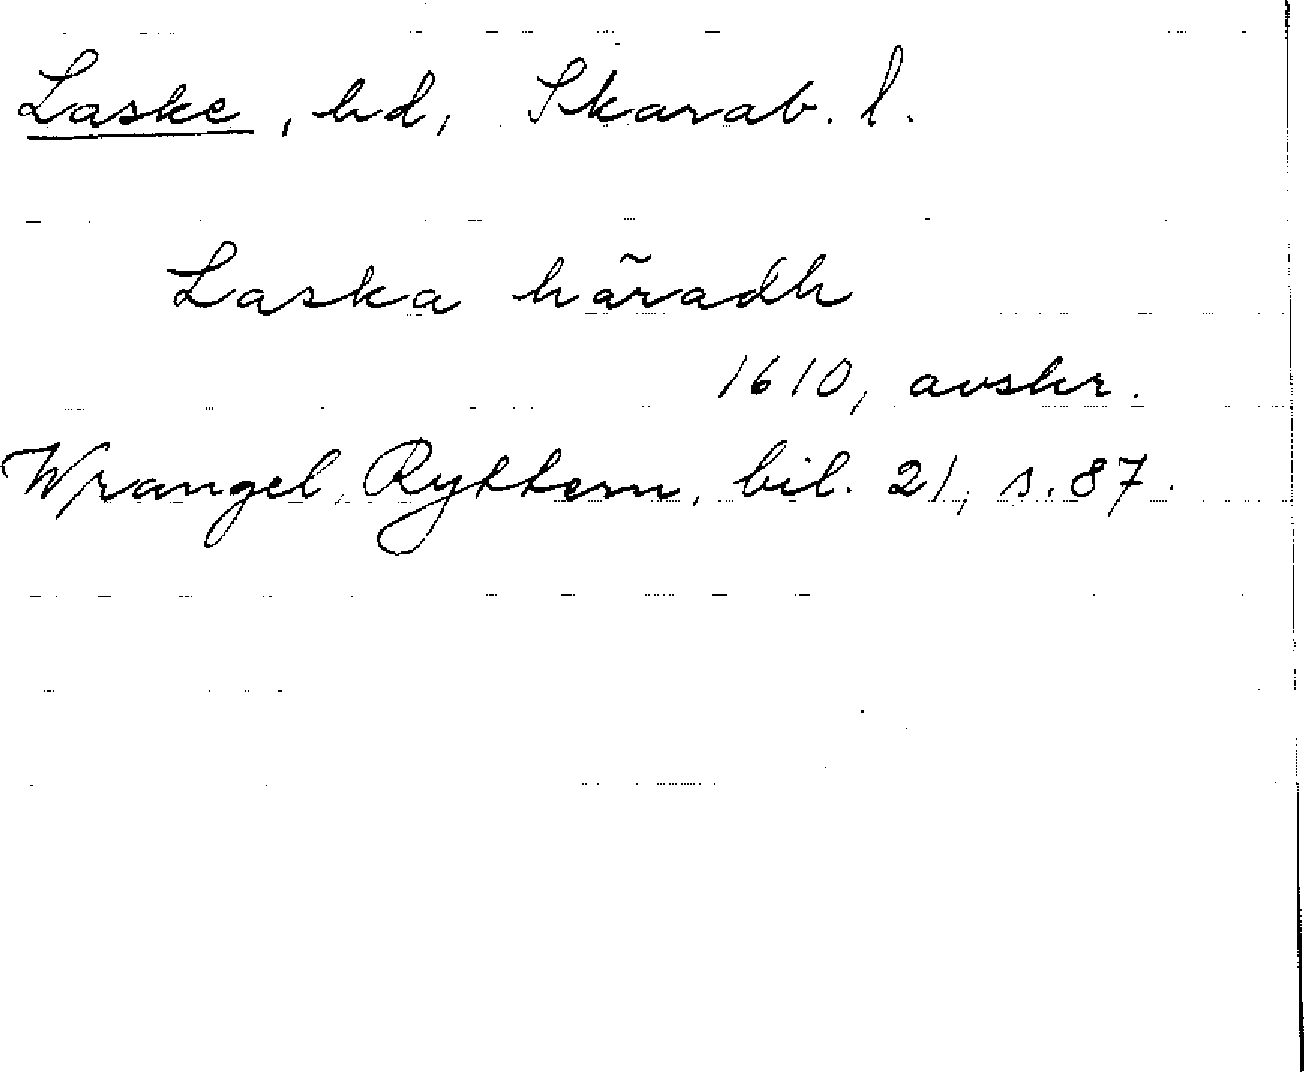 Laske, hd, Skarab. l.
Laska häradh
1610, avskr.
Wrangel, Ryttern, bil. 21, s. 87.